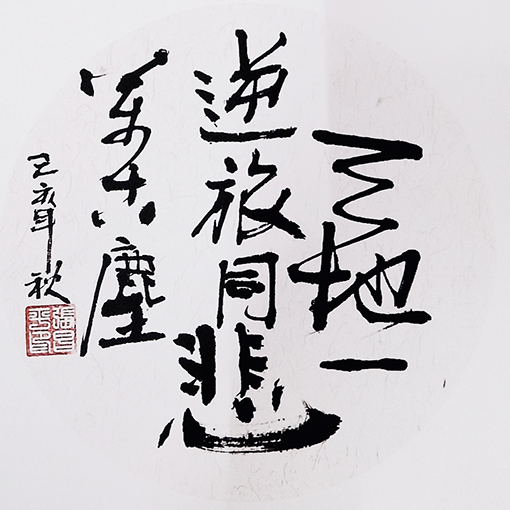 天地一
逆旅同
悲
萬古塵
己亥年秋